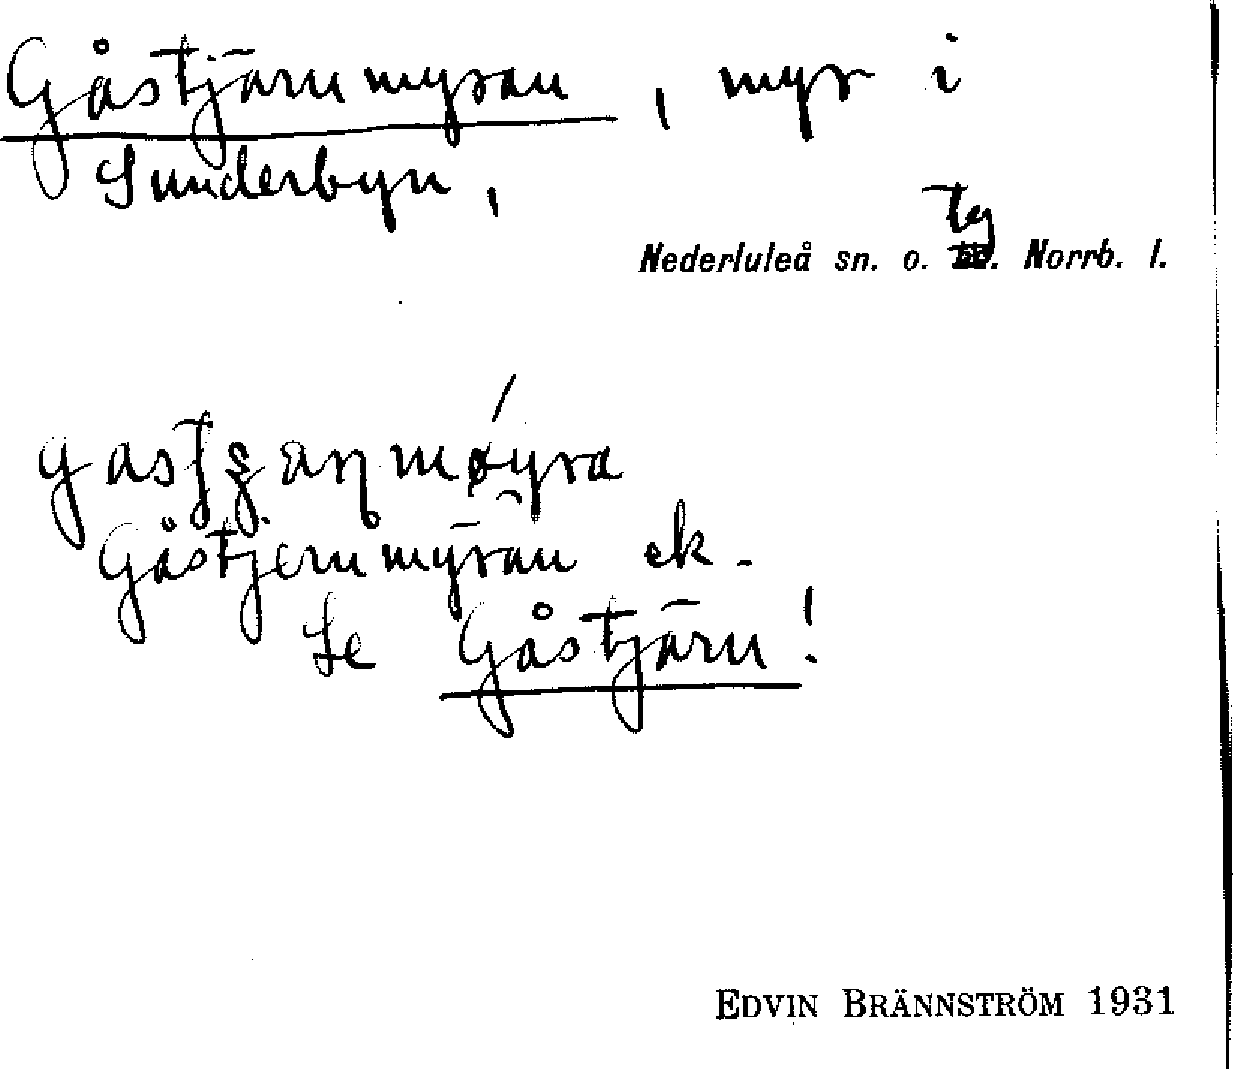 Gåstjärnmyran, myr i
Sunderbyn,
tg
Nederluleå sn. o. Norrb. l.
Gåstjernmyran ek.
Se Gåstjärn!
EDVIN BRÄNNSTRÖM 1931